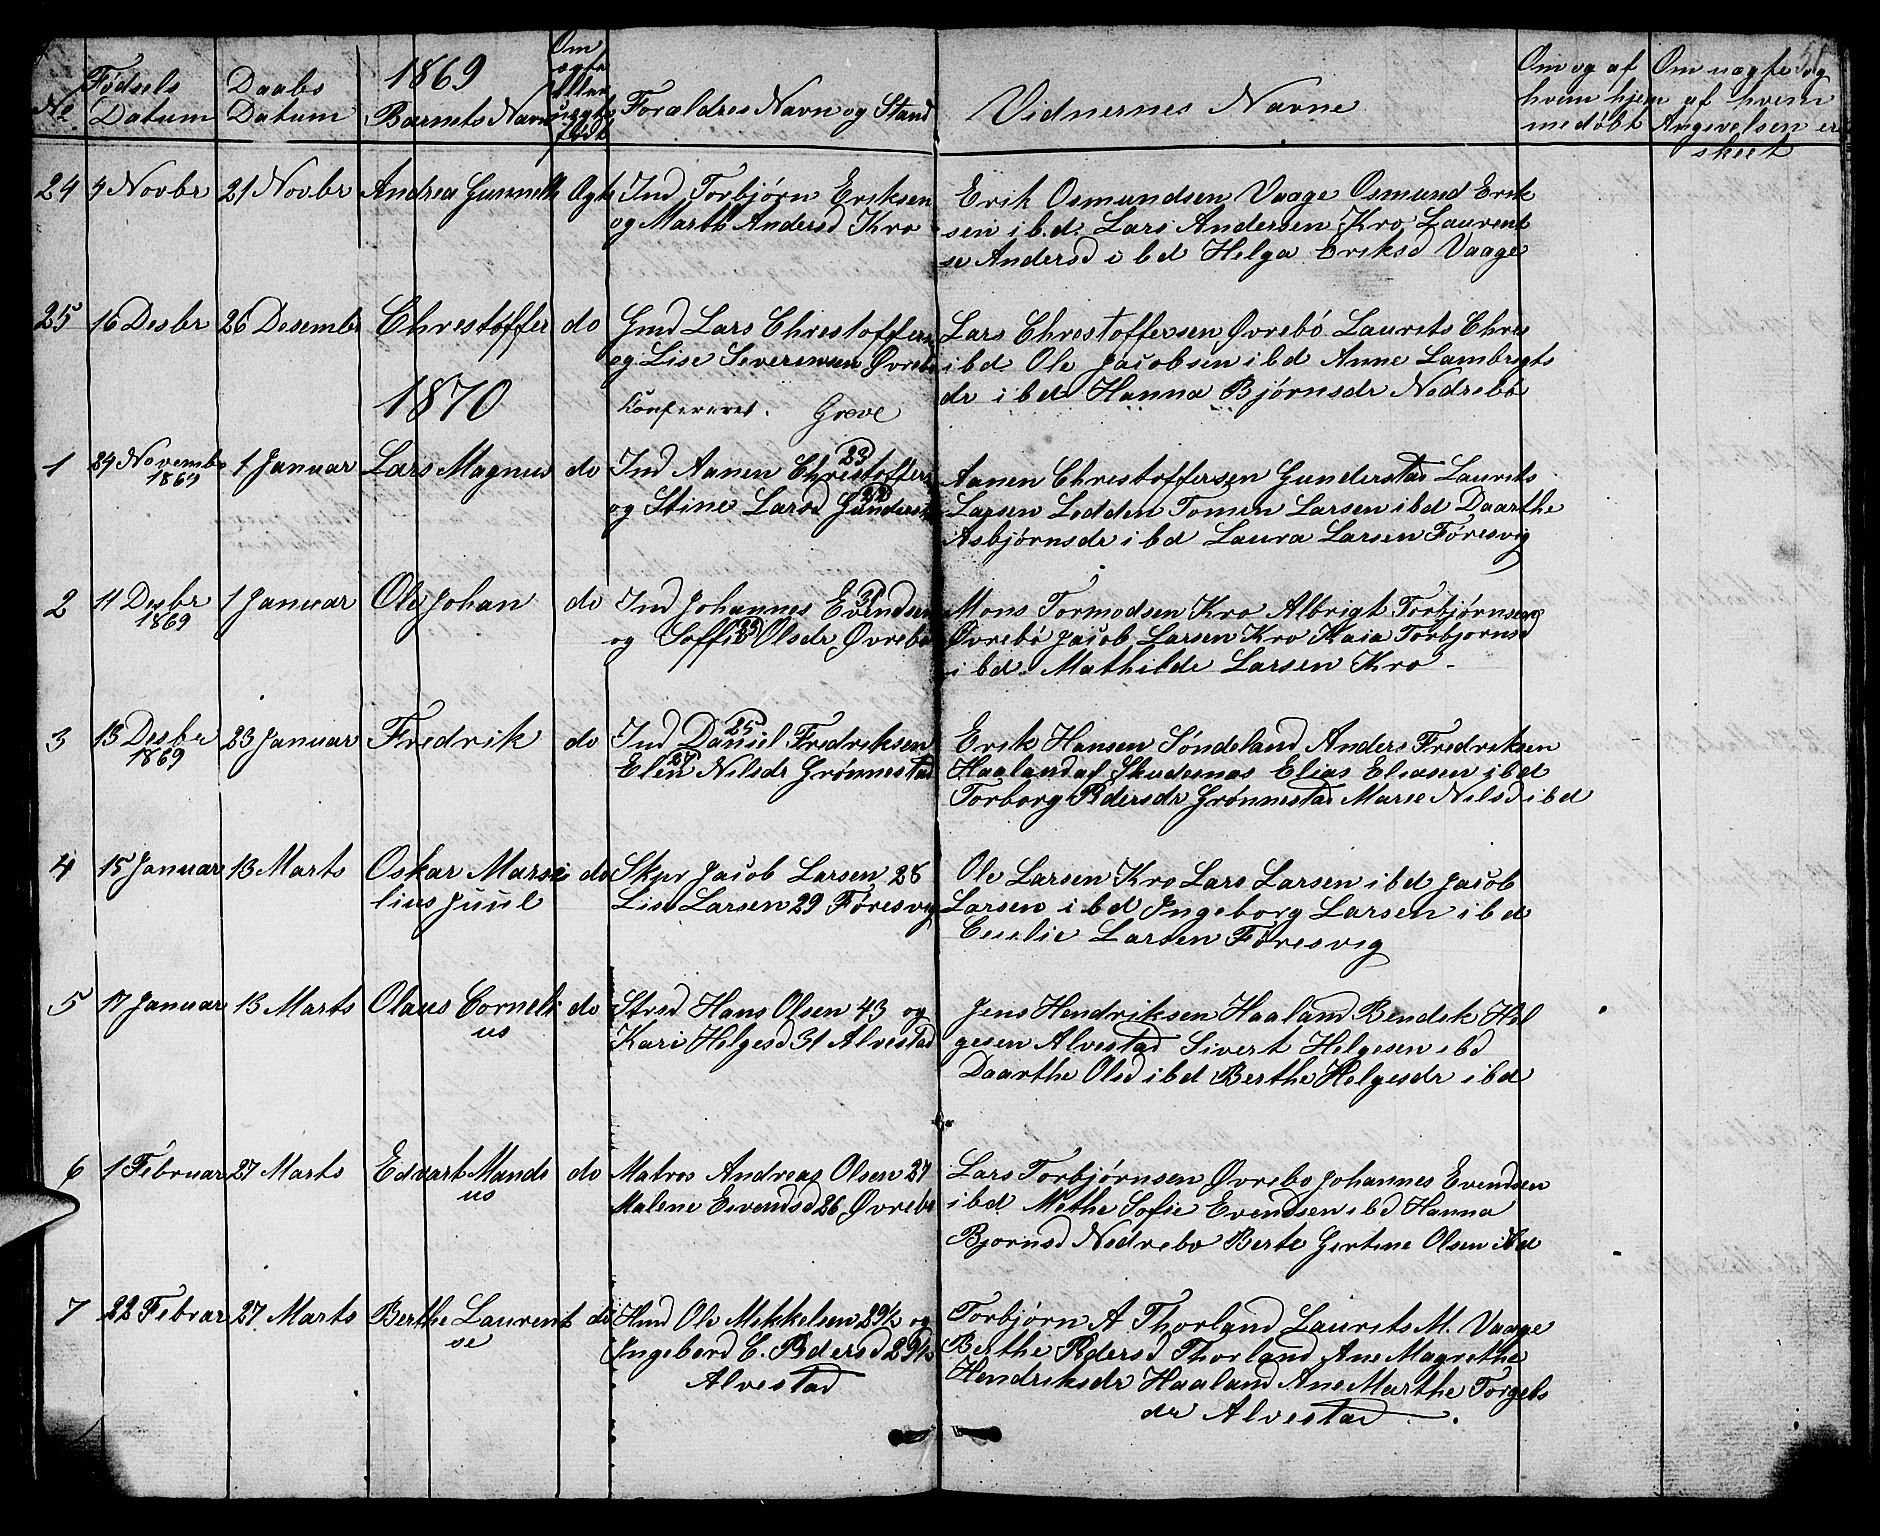 51
No Fødsels Datum
Daabs Datum
1869
Barnets Navn
Om ægte eller uægte født
Foraldres Navn og Stand
Vidnernes Navne
Om og af hvem hjemmedøbt
Om uægte og af hvem Angivelsen er skeet
24 4 Novbr 21 Novbr Andrea Gunnelle Ægte Ind Torbjørn Eriksen
og Marth Andersd Kro
Erik Osmundsen Vaage Osmund Erik
sen ibd. Lars Andersen Kro Laurent
se Andersd ibd Helga Eriksd Vaage
25 16 Desbr 26 Desembr Chrestoffer do Gmd Lars Chrestoffers
og Lise Severensen Øvrebø
Lars Chrestoffersen Øvrebø Laurits Chres
ibd Ole Jacobsen ibd Anne Lambregts
dr ibd Hanna Bjørnsdr Nedrebø
1870
Konfereret. Greve
1 24 Novembr 1869 1 Januar Lars Magnus do Ind Aanen Chrestoffers 23
og Stine Larsd Gunderst
Aanen Chrestoffersen Gunderstad Laurits
Larsen Lodden Tomen Larsen ibd Daarthe
Asbjørnsdr ibd Laura Larsen Føresvig
2 11 Desbr 1869 1 Januar Ole Johan do Ind Johannes Evendsen 31
og Soffie Olsdr Øvrebø
Mons Tormodsen Kro Albrigt Torbjørnsen
Øvrebø Jacob Larsen Kro Kaia Torbjornsd
ibd. Mathilde Larsen Kro
3 13 Desbr 1869 23 Januar Fredrik do Ind Daniel Fredriksen 25
Elen Nilsdr Grønnestad 27
Erik Hansen Søndeland Anders Fredriksen
Haaland af Skudesnæs Elias Eliasen ibd
Torborg Pedersdr Grønnestad Marie Nilsd ibd
4 15 Januar 13 Marts Oskar Marse
lius Juul do Skpr Jacob Larsen 28
Lise Larsen 29 Føresvig
Ole Larsen Kro Lars Larsen ibd Jacob
Larsen ibd Ingeborg Larsen ibd
Cecelie Larsen Føresvig
5 17 Januar 13 Marts Olaus Corneli
us do Strsd Hans Olsen 43 og
Kari Helgesd 31 Alvestad
Jens Hendriksen Haaland Bendek Hel
gesen Alvestad Sivert Helgesen ibd
Daarthe Olsd ibd Berthe Helgesdr ibd
6 1 Februar 27 Marts Edvart Mands
us do Matros Andreas Olsen 27
Malene Eivendsd 26 Øvrebø
Lars Torbjørnsen Øvrebo Johannes Evendsen
ibd Methe Sofie Evendsen ibd Hanna
Bjornsd Nedrebo Berte Gertine Olsen ibd
7 22 Februar 27 Marts Berthe Laurent
se do Hmd Ole Mekkelsen 29½ og
Ingebord E. Pedersd 29½
Alvestad
Torbjørn A Thorland Laurits M. Vaage
Berthe Pedersd Thorland Ane Magrethe
Hendriksdr Haaland Ane Marthe Torgels
dr Alvestad